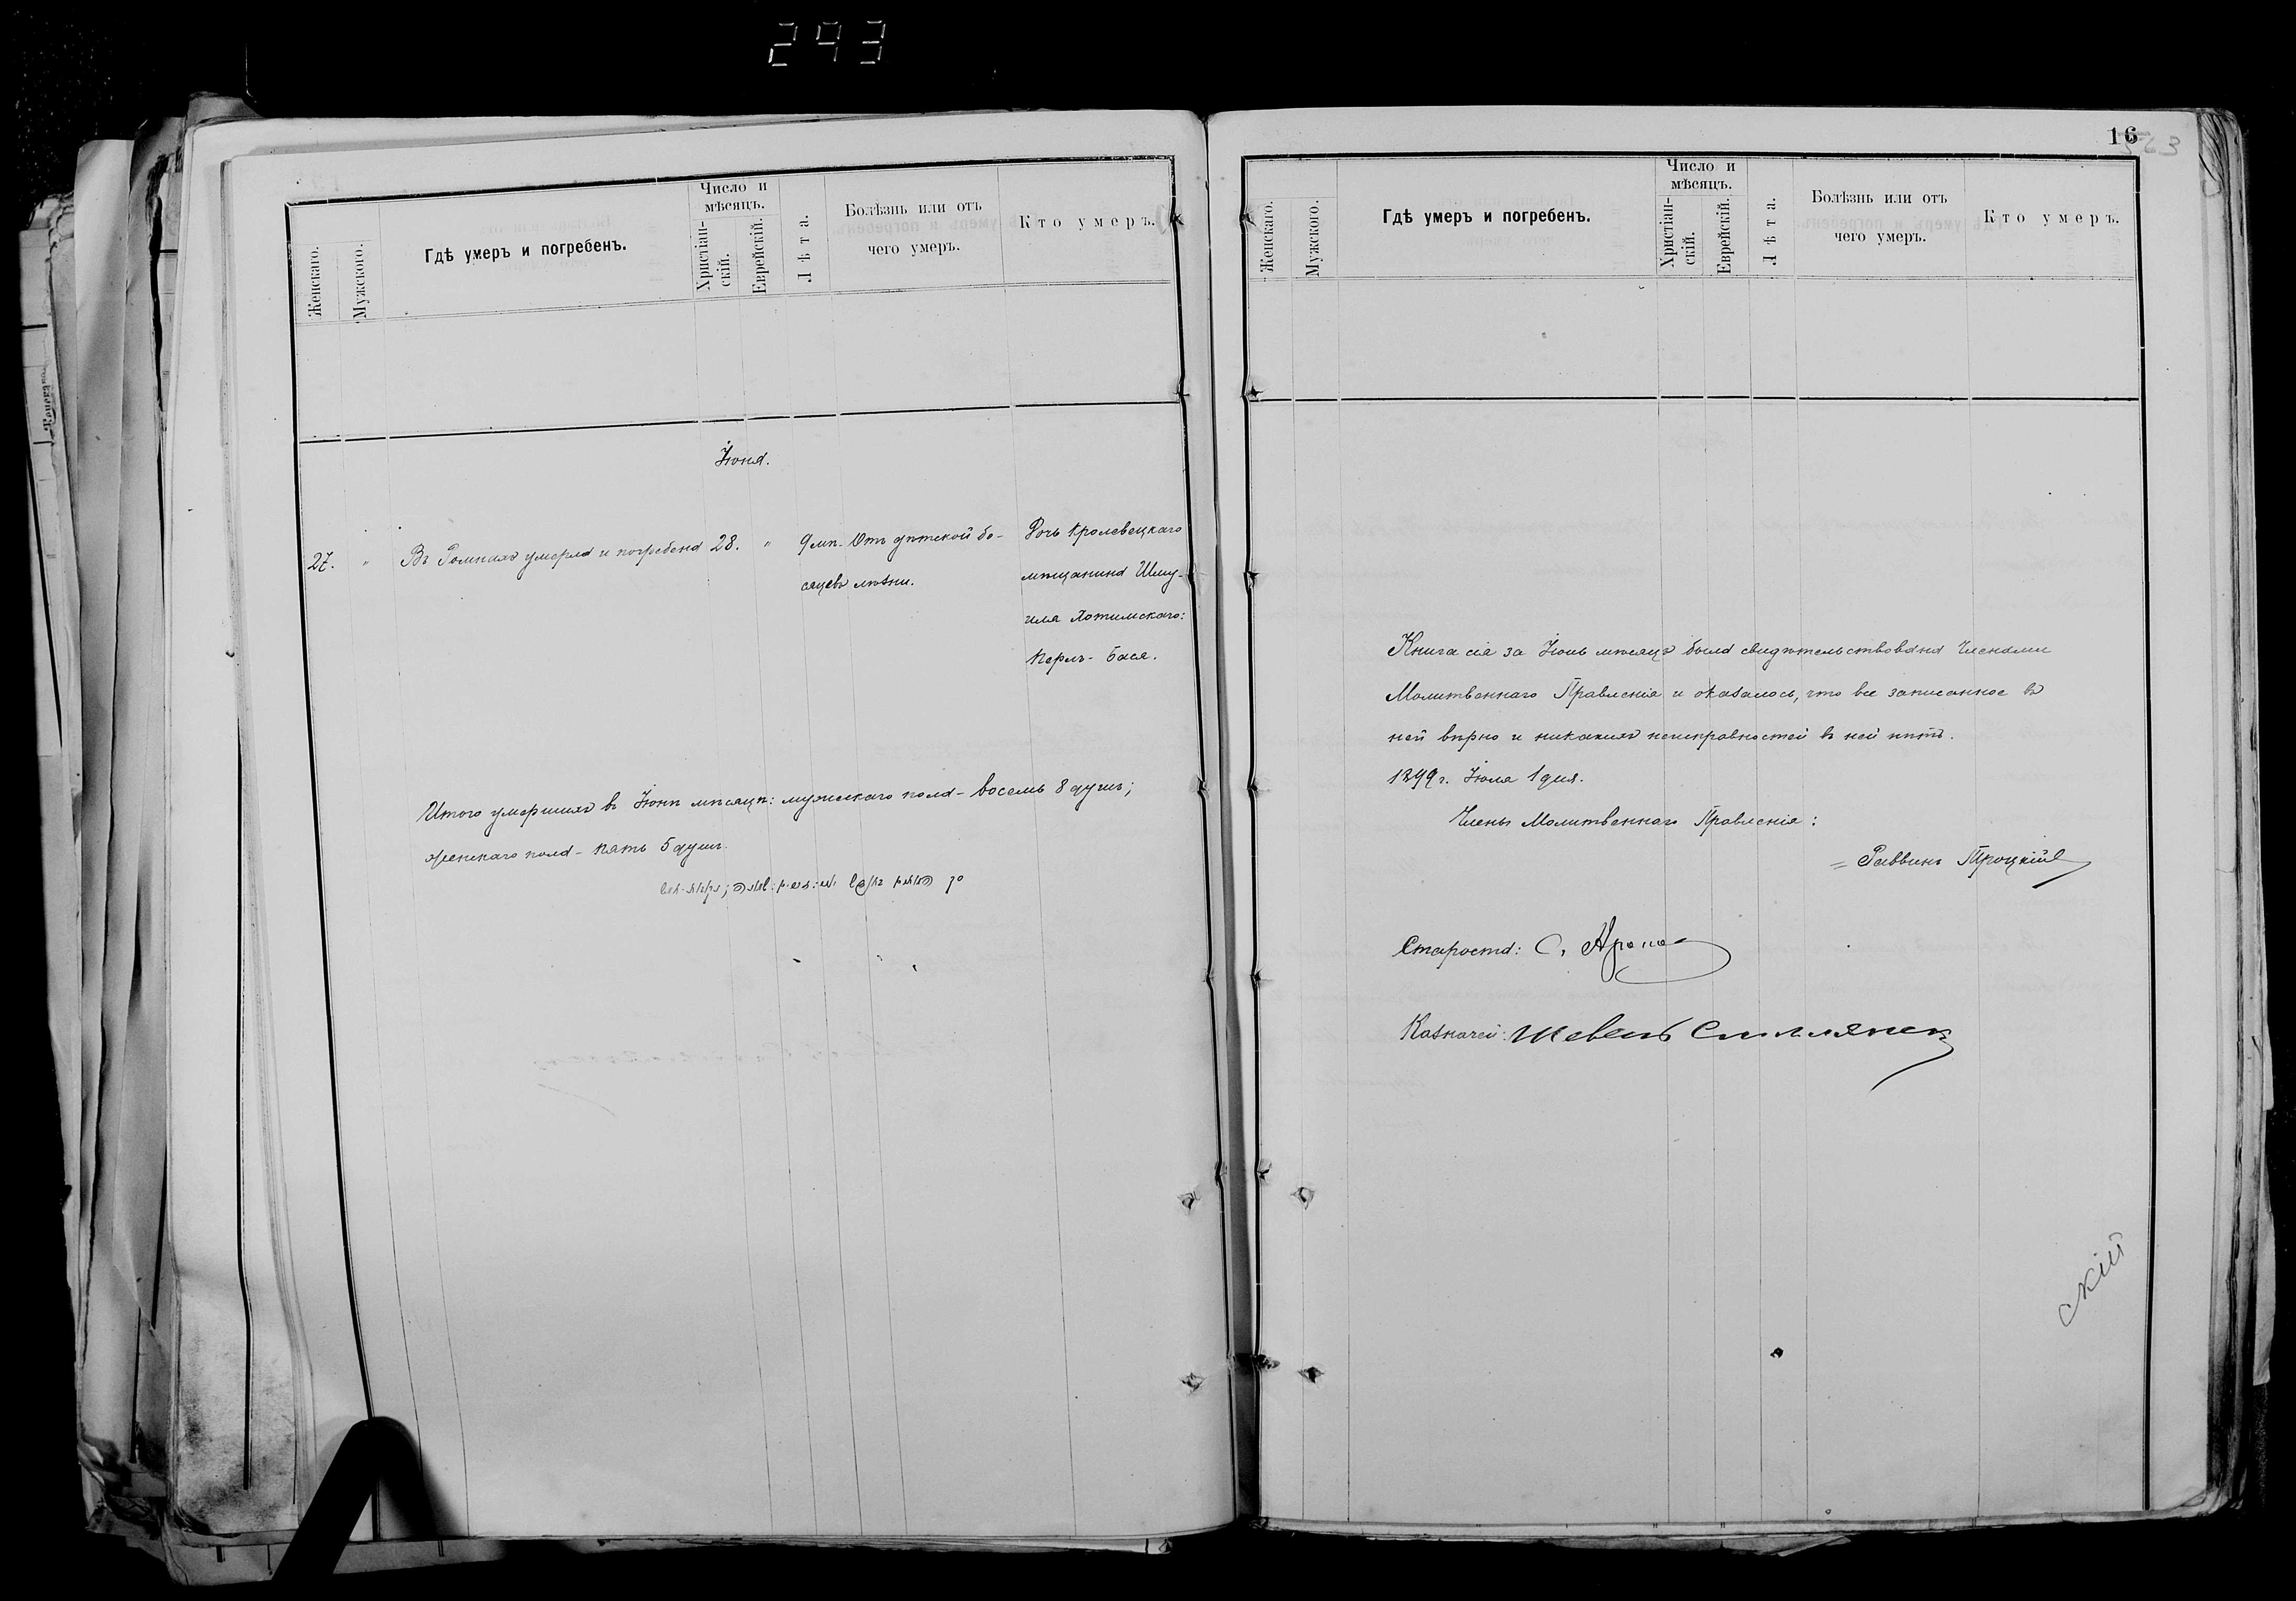 293
Женскаго.
Мужского.
Гдѣ умеръ и погребенъ.
Число и мѣсяцъ.
Христіан-скій.
Еврейскій.
Лѣта.
Болѣзнь или отъ чего умеръ.
Кто умеръ.
Іюня.
27. " Въ Ромнахъ умерла и погребена 28. " 9 мѣ- Отъ дѣтской бо- Дочь Кролевецкаго
сяцевъ лѣзни. мѣщанина Шму-
иля Хотимскаго:
Перль-Бася.
Итого умершихъ въ Іюнѣ мѣсяцѣ: мужескаго пола - восемь 8 душъ;
женскаго пола - пять 5 душъ.
16
Женскаго.
Мужского.
Гдѣ умеръ и погребенъ.
Число и мѣсяцъ.
Христіан-скій.
Еврейскій.
Лѣта.
Болѣзнь или отъ чего умеръ.
Кто умеръ.
Книга сія за Іюнь мѣсяцъ была свидѣтельствована Членами
Молитвеннаго Правленія и оказалось, что все записанное въ
ней вѣрно и никакихъ неисправностей въ ней нѣтъ.
1899 г. Іюля 1 дня.
Члены Молитвеннаго Правленія:
Раввинъ Троцкій
Староста: С.
Казначей:
скій